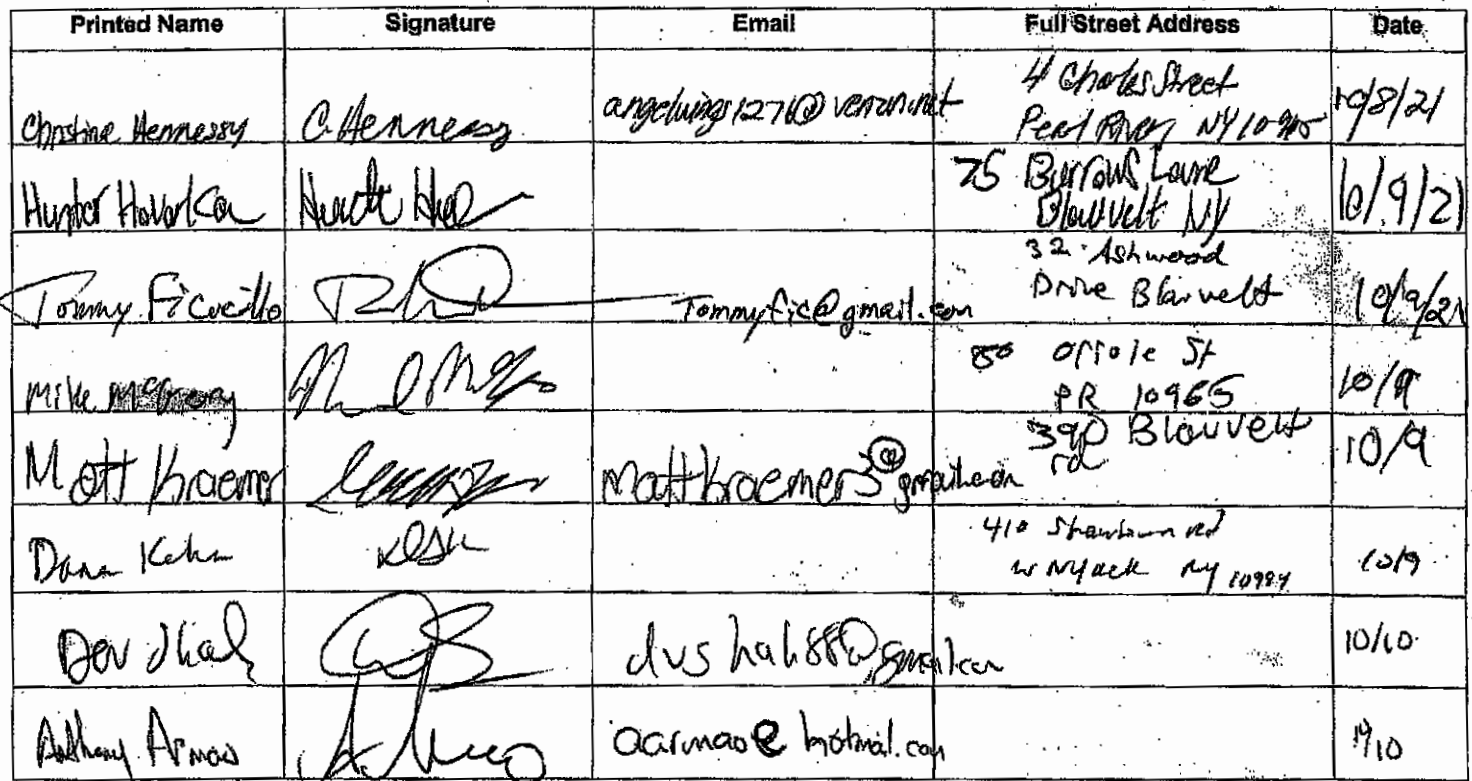 Printed Name Signature Email Full Street Address Date
Christine Hennessy C. Hennessy angelwings1271@verizon.net 4 Charles Street
Pearl River NY 10965 10/8/21
Hunter Hovorka 75 Burrows Lane
Blauvelt NY 10/9/21
Tommy Ficucillo Tommyfic@gmail.com 32 Ashwood
Drive Blauvelt 10/9/21
Mike 80 Oriole St
PR 10965 10/9
Matt Kraemer mattkraemer3@gmail.com 390 Blauvelt
rd 10/9
Dana 410 Strawtown rd
W Nyack NY 10994 10/9
Dev dvshah88@gmail.com 10/10
Anthony Armao aarmao@hotmail.com 10/10